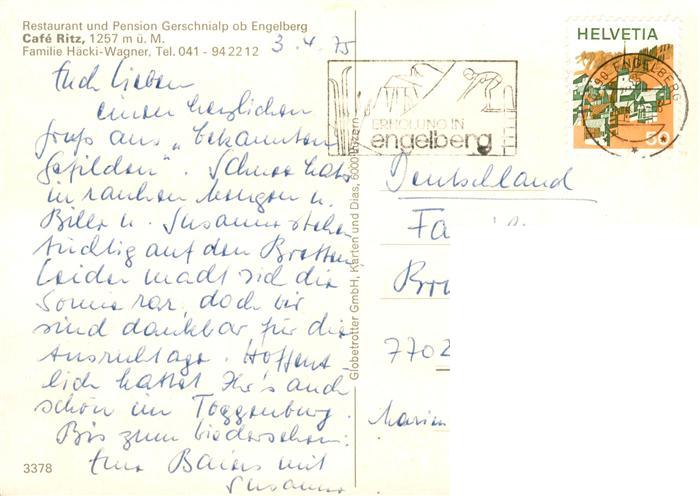 Restaurant und Pension Gerschnialp ob Engelberg
Café Ritz, 1257 m ü. M.
Familie Häcki-Wagner, Tel. 041 - 94 22 12
3.4.75
Euch Lieben
einen herzlichen
Gruß aus „bekannten
Gefilden". Schnee hats
in rauhen Mengen u.
u. Susanne stehen
tüchtig auf den Brettern,
Leider macht sich die
Sonne rar, doch wir
sind dankbar für die
Ausruhtage. Hoffent-
lich hattet Ihr's auch
schön im Toggenburg.
Bis zum Wiedersehen:
Eure mit
Susanne
3378
Globetrotter GmbH, Karten und Dias, 6000 Luzern
ERHOLUNG IN
engelberg
HELVETIA
50
90 ENGELBERG
Deutschland
Fa
Br
7702